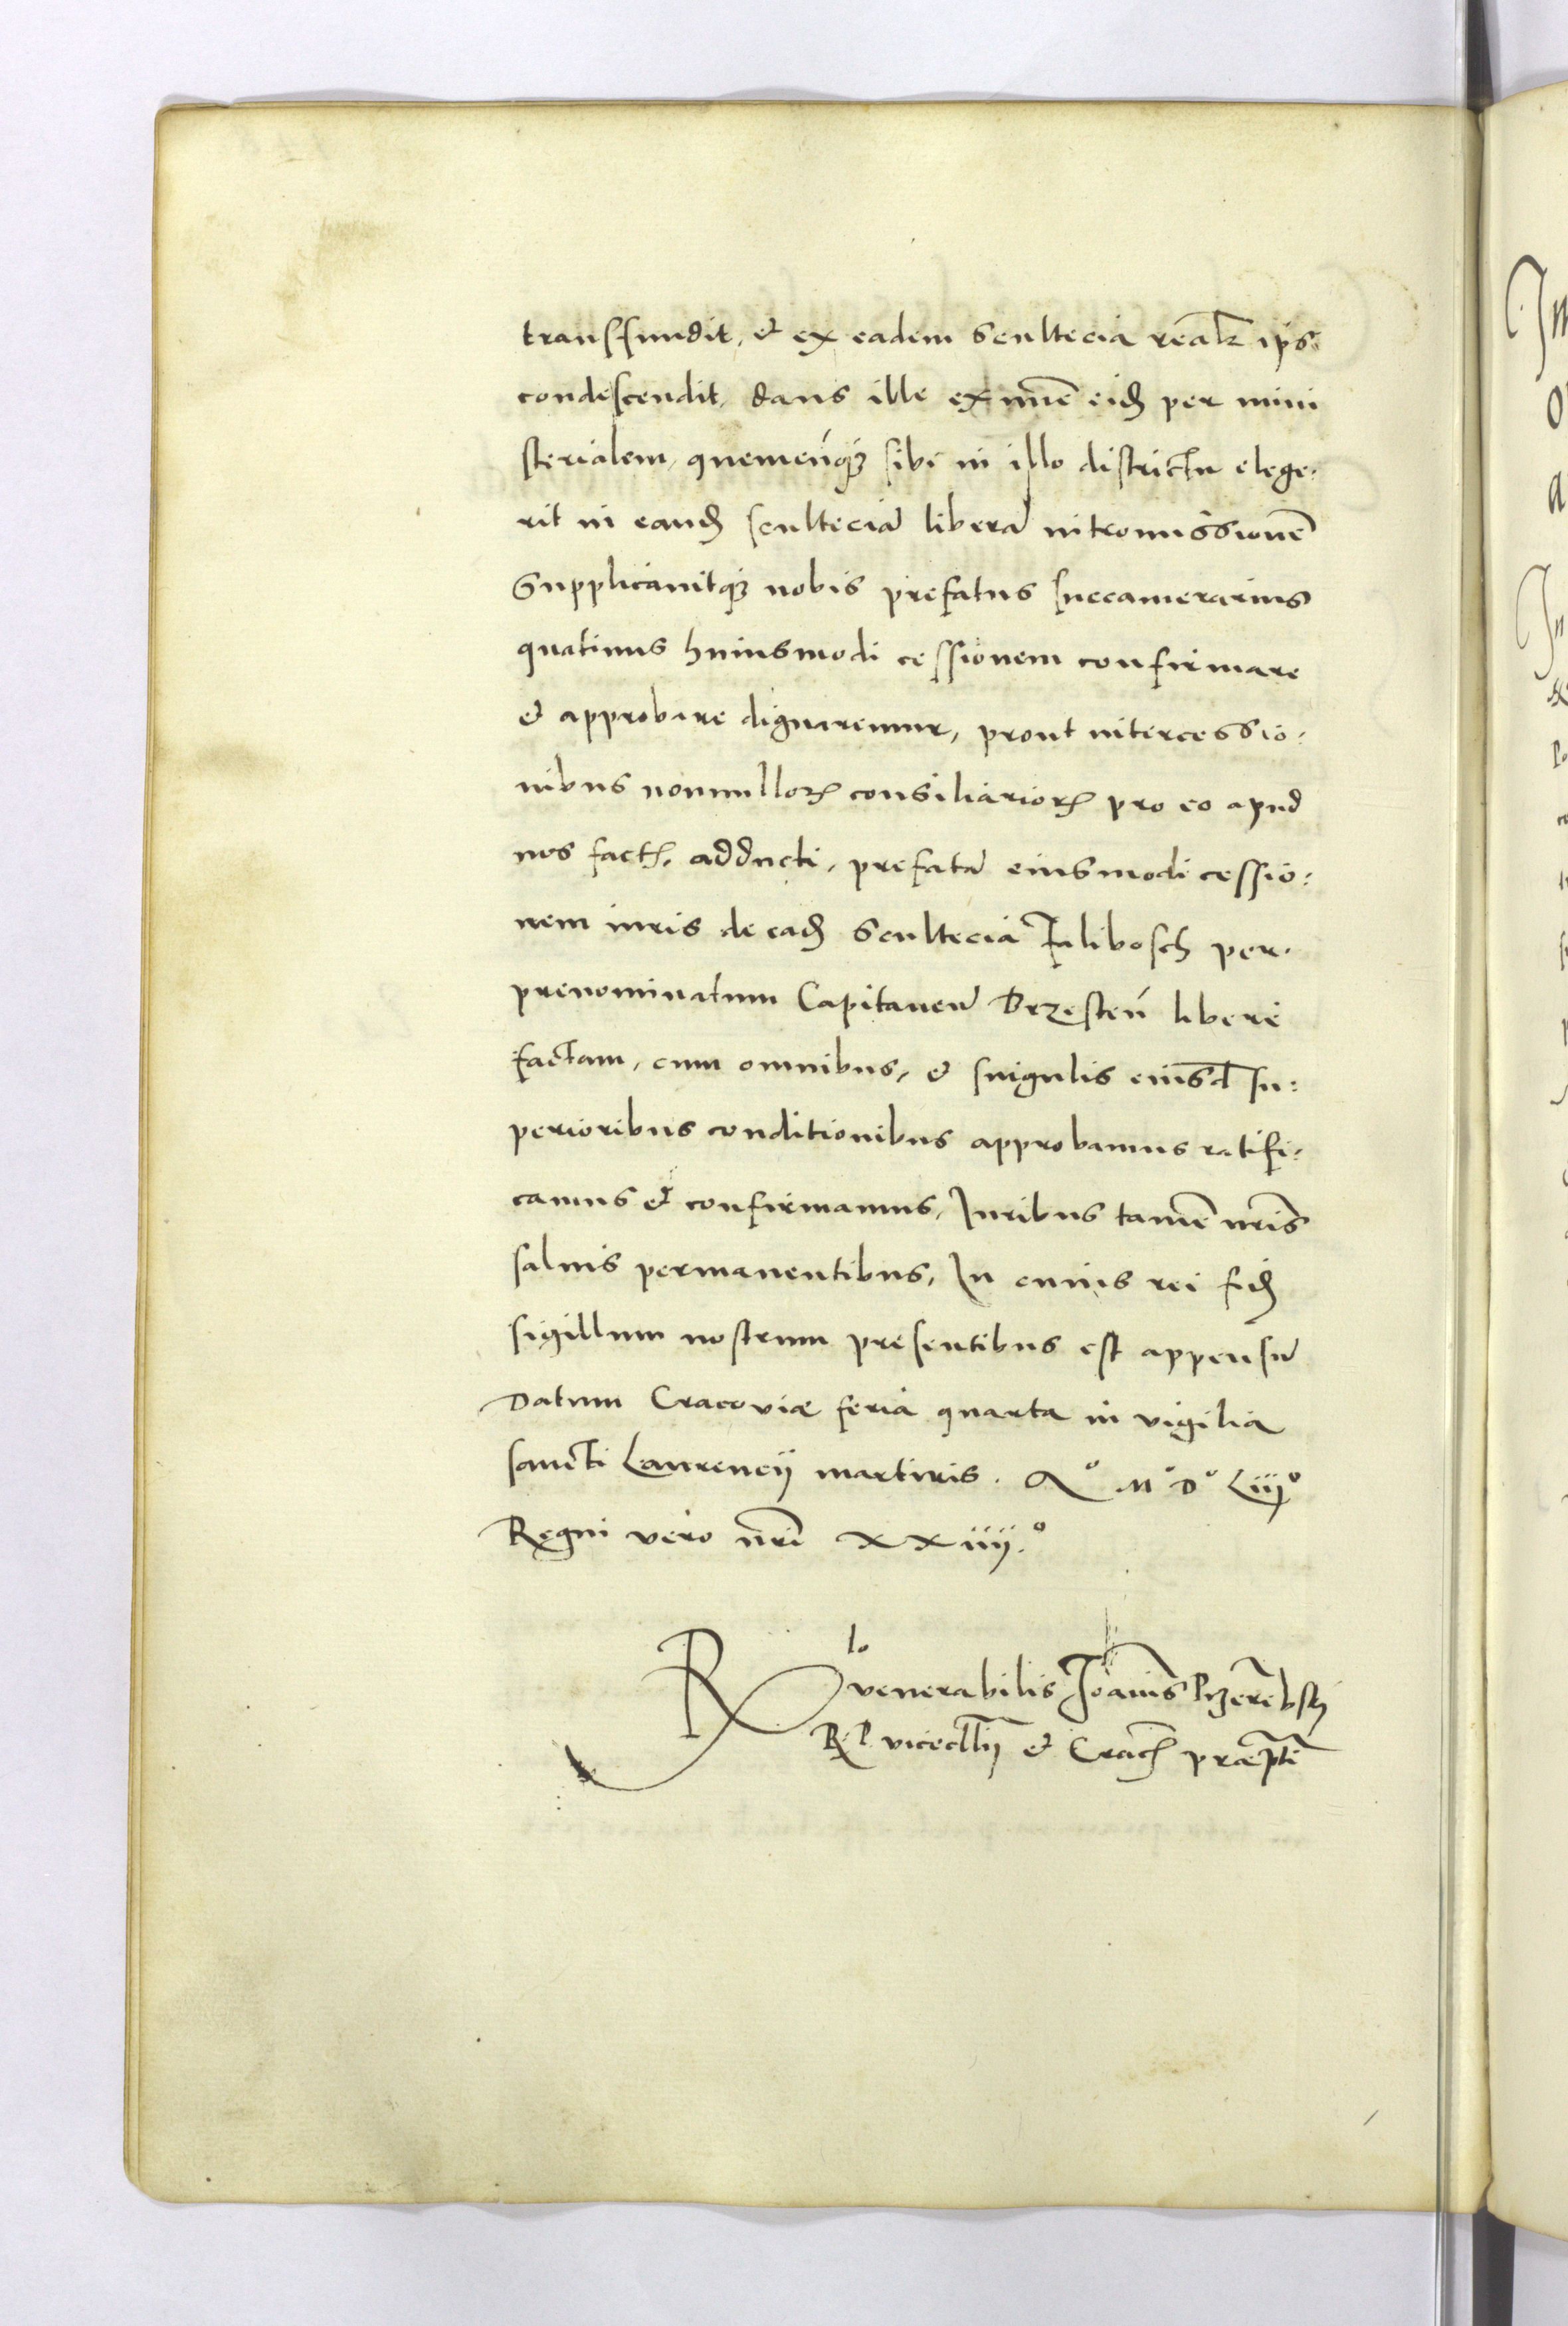 transfundit, et ex eadem scultecia realr ips
condescendit, dans ille ex nūc eid per mini
sterialem, quemcūqȝ sibi in illo districtu elege-
rit in eand scultecia libera intromissionē
Supplicavitqȝ nobis prefatus succamerarius
quatinus huiusmodi cessionem confirmare
et approbare dignaremur, prout intercessio:
nibus nonnullorꝝ consiliariorꝝ pro eo apud
nos fact, adducti, prefatā eiusmodi cessio:
nem iuris de ead Scultecia Falibosch per
prenominatum Capitaneū Brzesteń libere
factam, cum omnibus, et singulis eiusd su:
perioribus conditionibus approbamus ratifi:
camus et confirmamus, Iuribus tamē nris
salvis permanentibus, In cuius rei fid
sigillum nostrum presentibus est appensū
Datum Cracoviæ feria quarta in vigilia
sancti Laurencij martiris. Aº Mº Dº Liijº
Regni vero nri xxiiij.º
Rlo venerabilis Joanis Przerēbsky
R. P. vicecllrij et Crac præpti
In
In